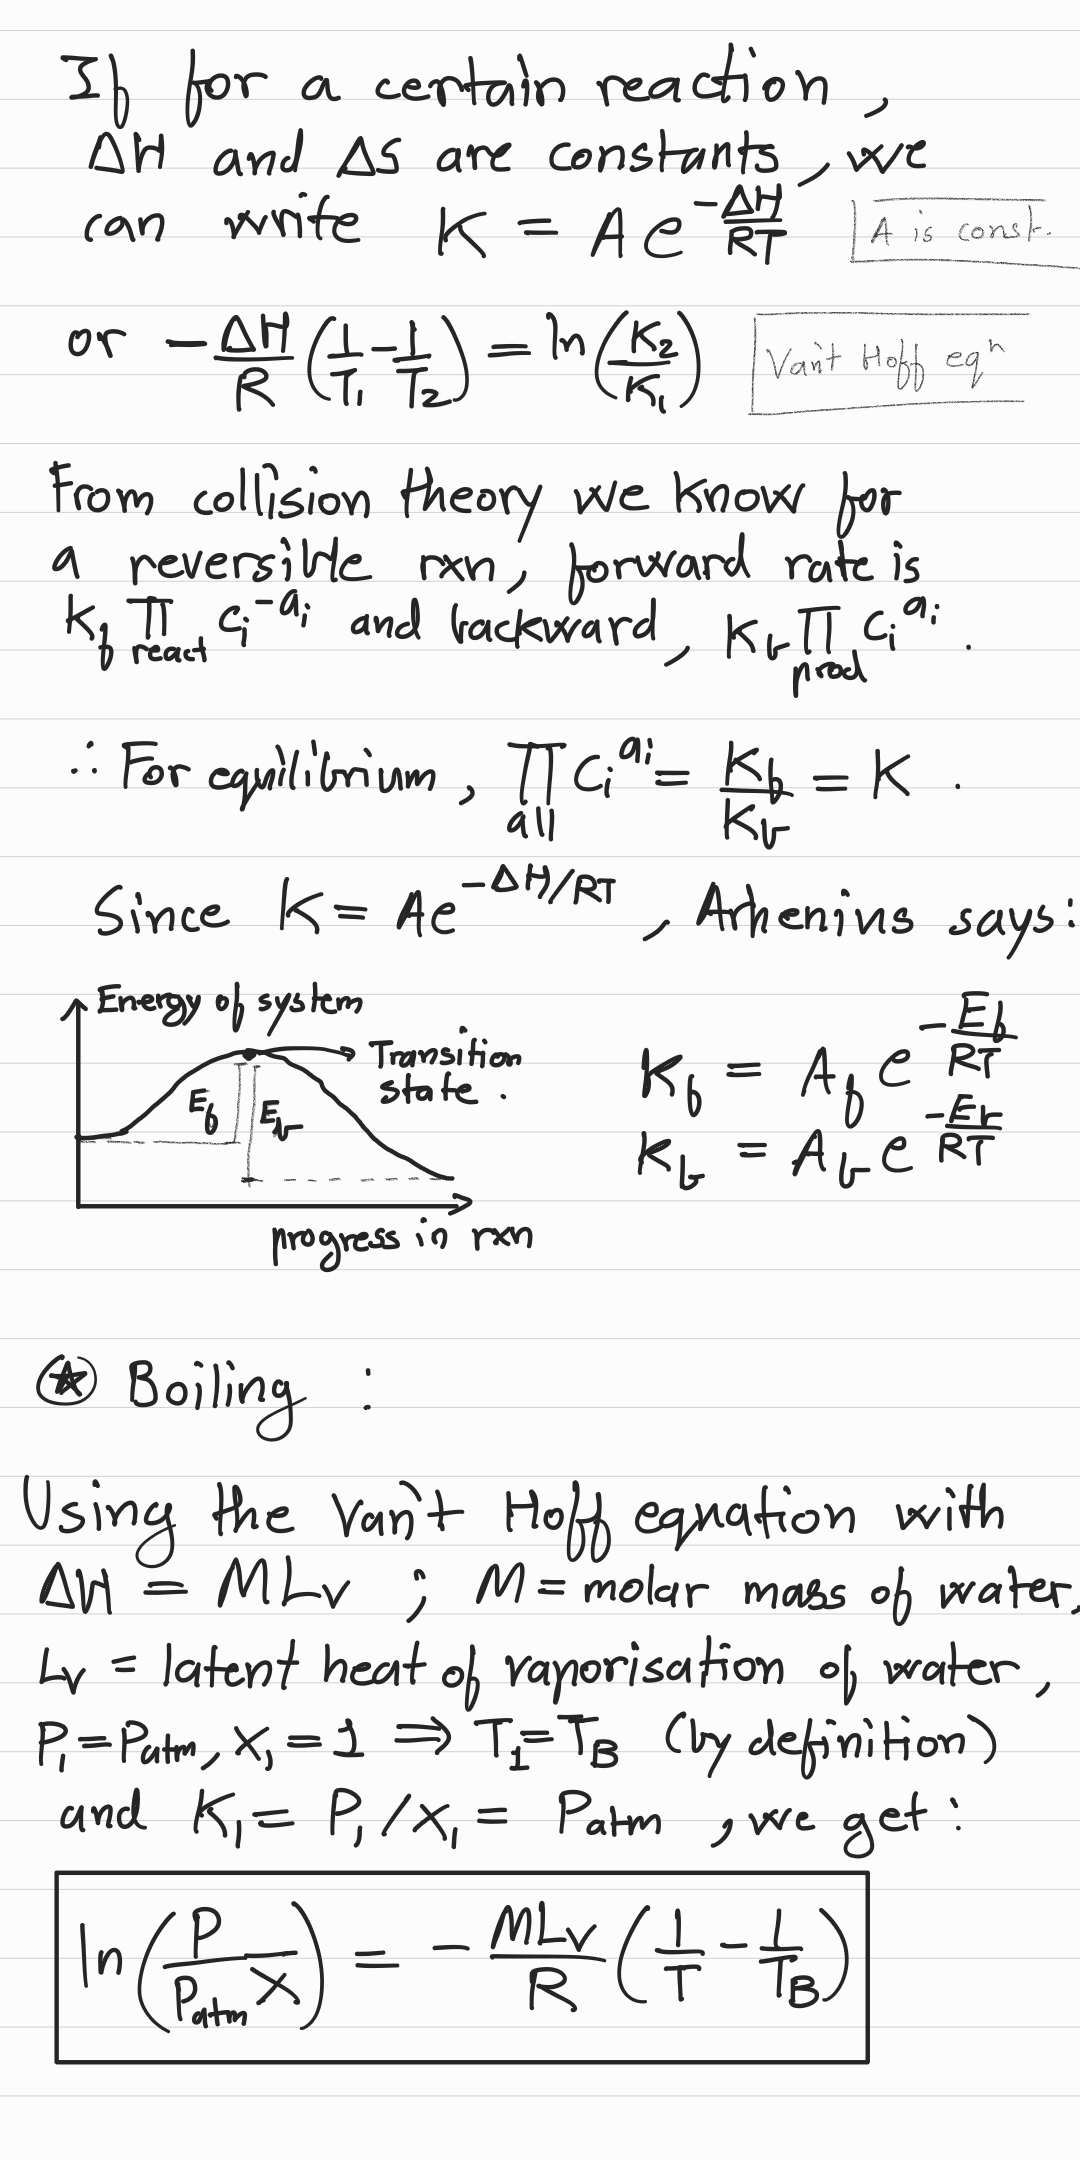 If for a certain reaction,
ΔH and ΔS are constants, we
can write K = A e^(-ΔH/RT) A is const.
or -ΔH/R (1/T₁ - 1/T₂) = ln(K₂/K₁) Van't Hoff eqⁿ
From collision theory we know for
a reversible rxn, forward rate is
K_f ∏_react C_i^(-a_i) and backward, K_b ∏_prod C_i^(a_i).
∴ For equilibrium, ∏_all C_i^(a_i) = K_f/K_b = K.
Since K = Ae^(-ΔH/RT), Arhenius says:
Energy of system
Transition
state.
E_f E_b
K_f = A_f e^(-E_f/RT)
K_b = A_b e^(-E_b/RT)
progress in rxn
Boiling :
Using the Van't Hoff equation with
ΔH = MLv ; M = molar mass of water,
Lv = latent heat of vaporisation of water,
P₁ = Patm, X₁ = 1 ⇒ T₁ = T_B (by definition)
and K₁ = P₁/X₁ = Patm, we get:
ln(P/(Patm X)) = - MLv/R (1/T - 1/T_B)